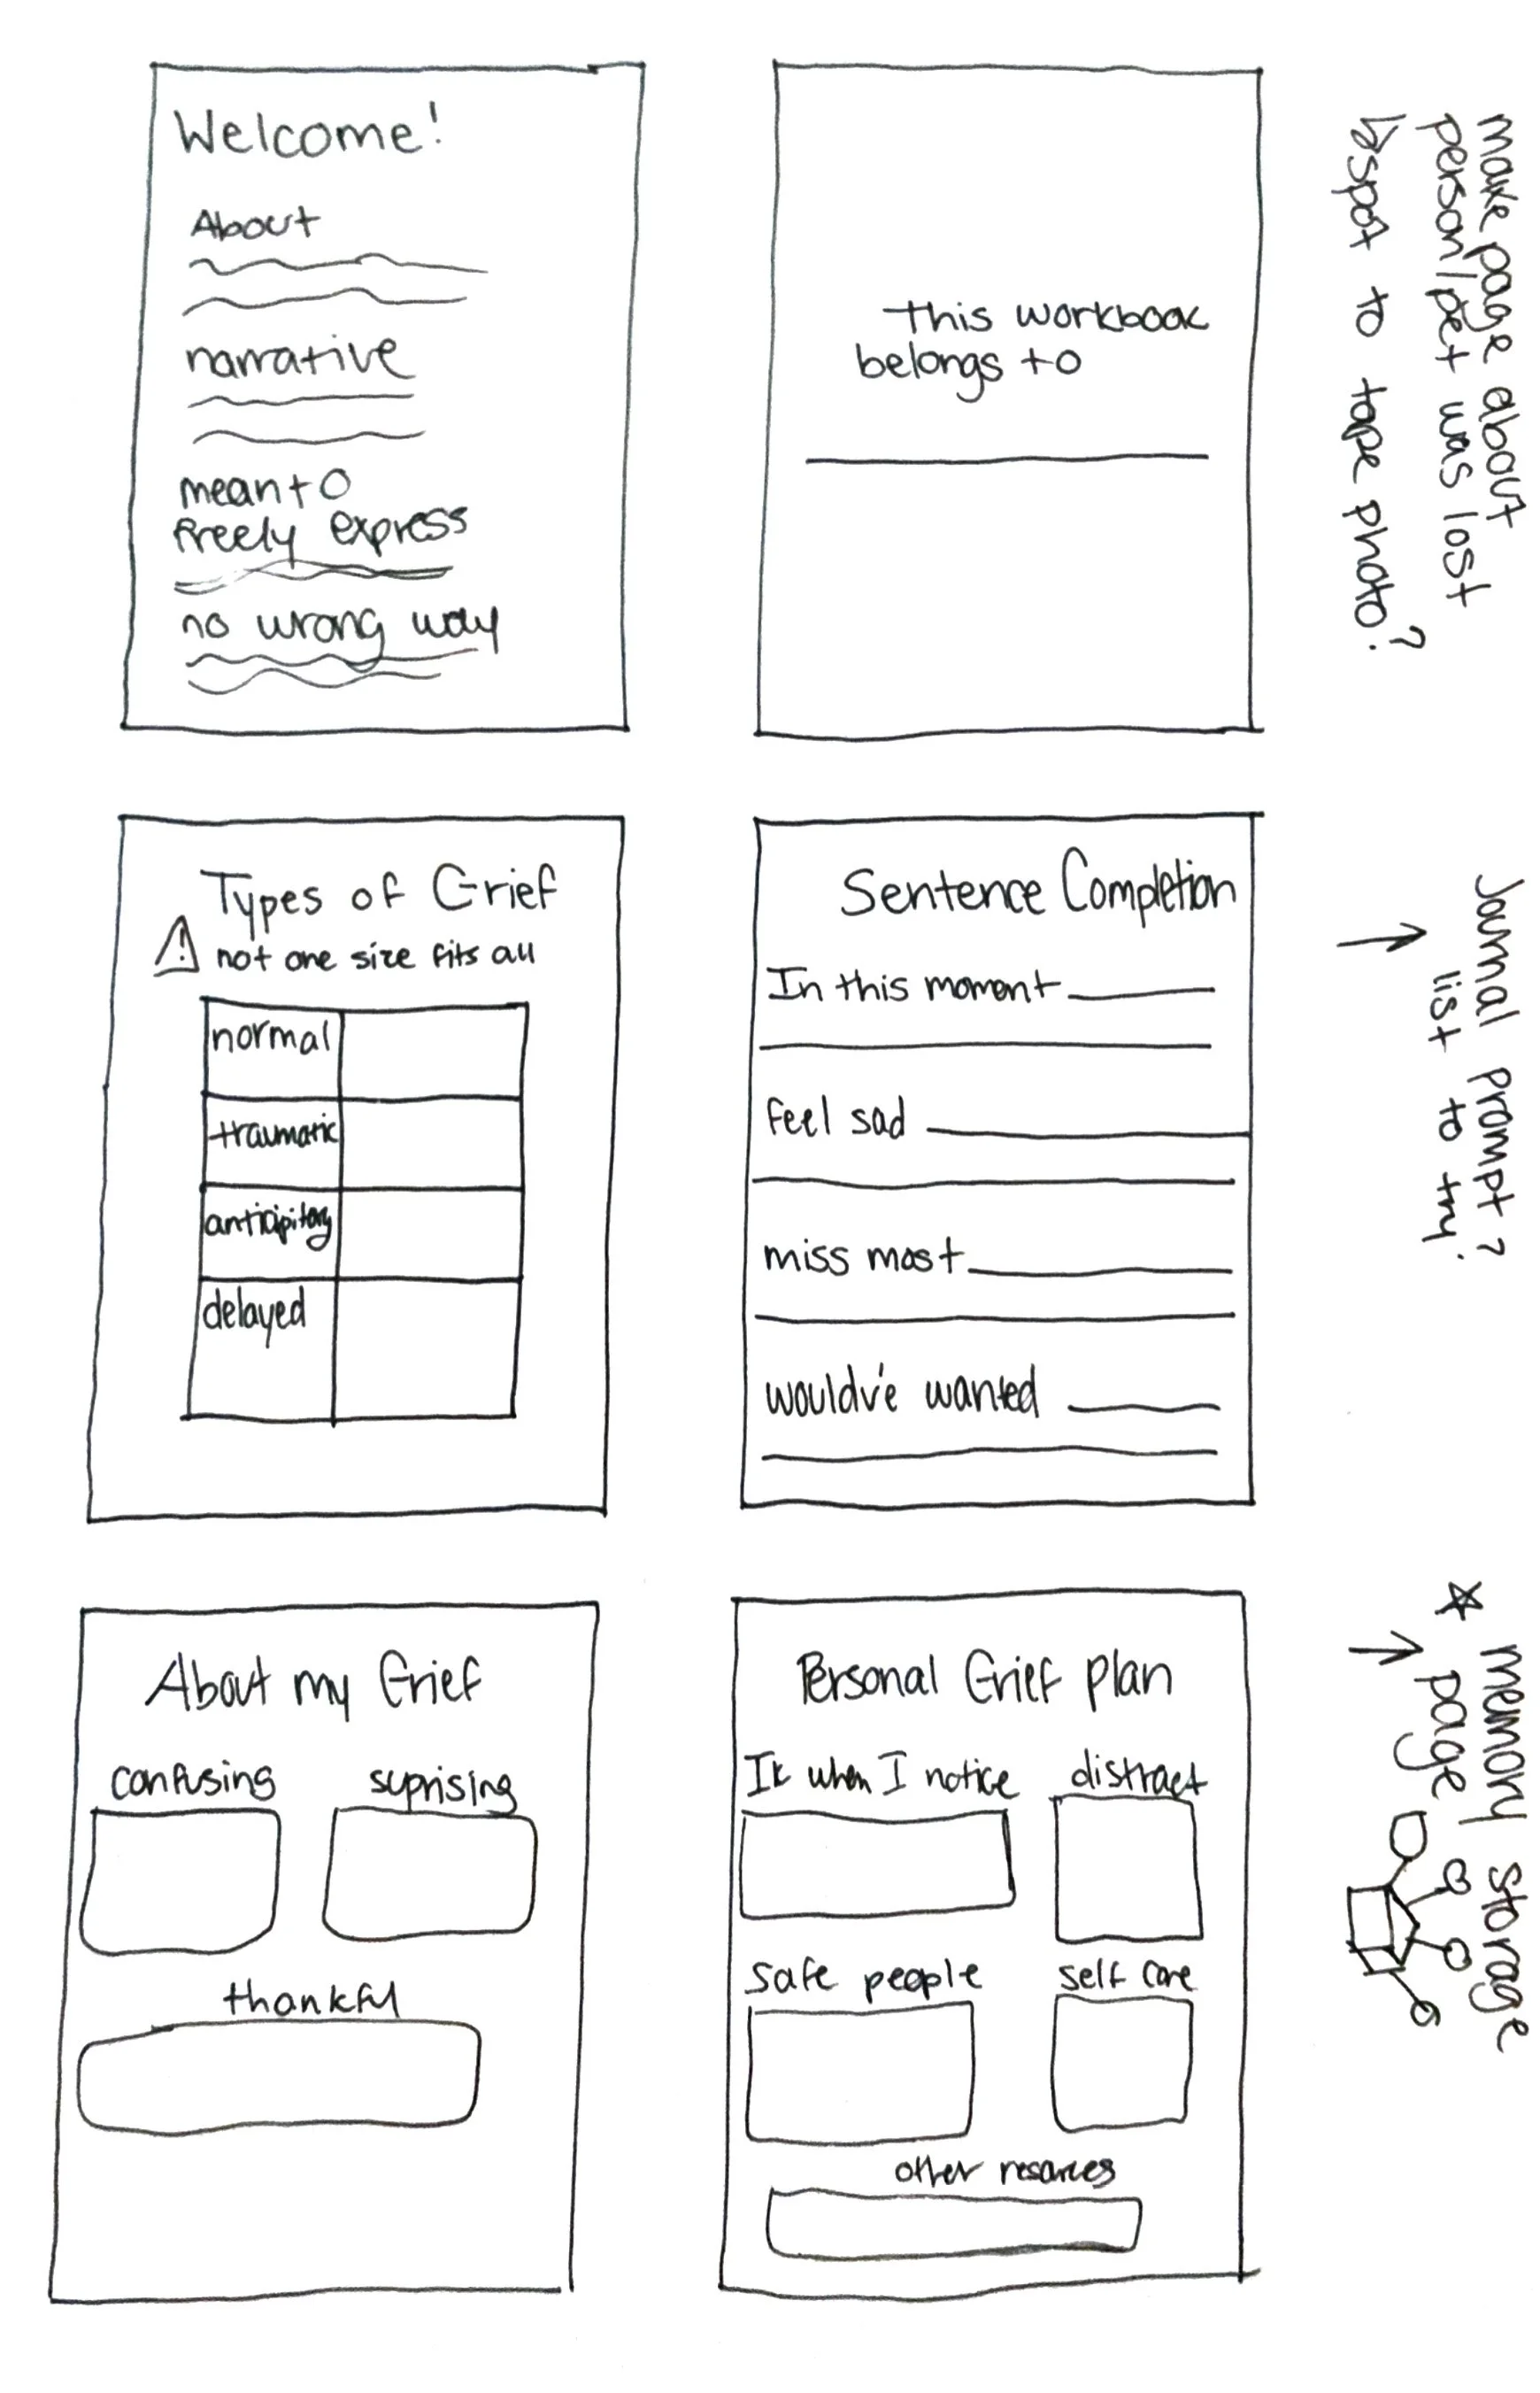 Welcome!
About
narrative
meant to
freely express
no wrong way
this workbook
belongs to
make page about
person/pet was lost
↳ spot to tape photo?
Types of Grief
⚠ not one size fits all
normal
traumatic
anticipitory
delayed
Sentence Completion
In this moment
feel sad
miss most
wouldv'e wanted
Journal prompt?
→ list to try
About my Grief
confusing
suprising
thankful
Personal Grief plan
Ik when I notice
distract
safe people
self care
other resources
☆ memory storage
→ page